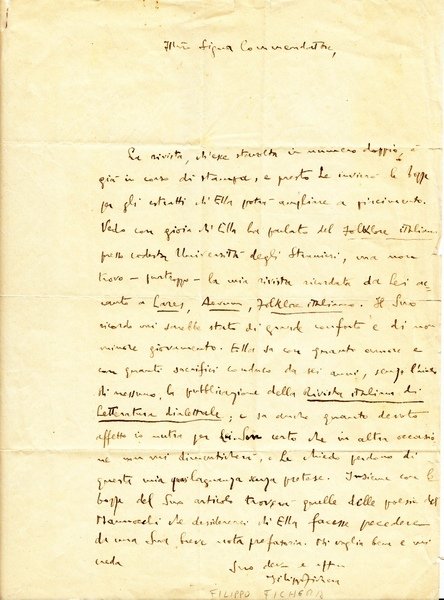 Illmo Signor Commendatore,
La rivista, ch'esce stavolta in numero doppio, è
già in corso di stampa, e presto Le invierò le bozze
per gli estratti ch'Ella potrà ampliare a piacimento.
Vedo con gioia ch'Ella ha parlato del Folklore italiano
presso codesta Università degli Stranieri, ma non
trovo - purtroppo - la mia rivista ricordata da Lei ac
canto a Lares, Aevum, Folklore italiano. Il Suo
ricordo mi sarebbe stato di grande conforto e di non
minore giovamento. Ella sa con quanto amore e
con quanti sacrifici conduco da sei anni, senza l'aiuto
di nessuno, la pubblicazione della Rivista italiana di
Letteratura dialettale; e sa anche quanto devoto
affetto io nutra per Lei. Son certo che in altra occasio
ne non mi dimenticherà, e Le chiedo perdono di
questa mia lagnanza senza pretese. Insieme con le
bozze del Suo articolo troverà quelle delle poesie del
Mannocchi che desidererei ch'Ella facesse precedere
da una Sua breve nota prefatoria. Mi voglia bene e mi
creda
Suo dev. e aff.
Filippo Fichera
FILIPPO FICHERA